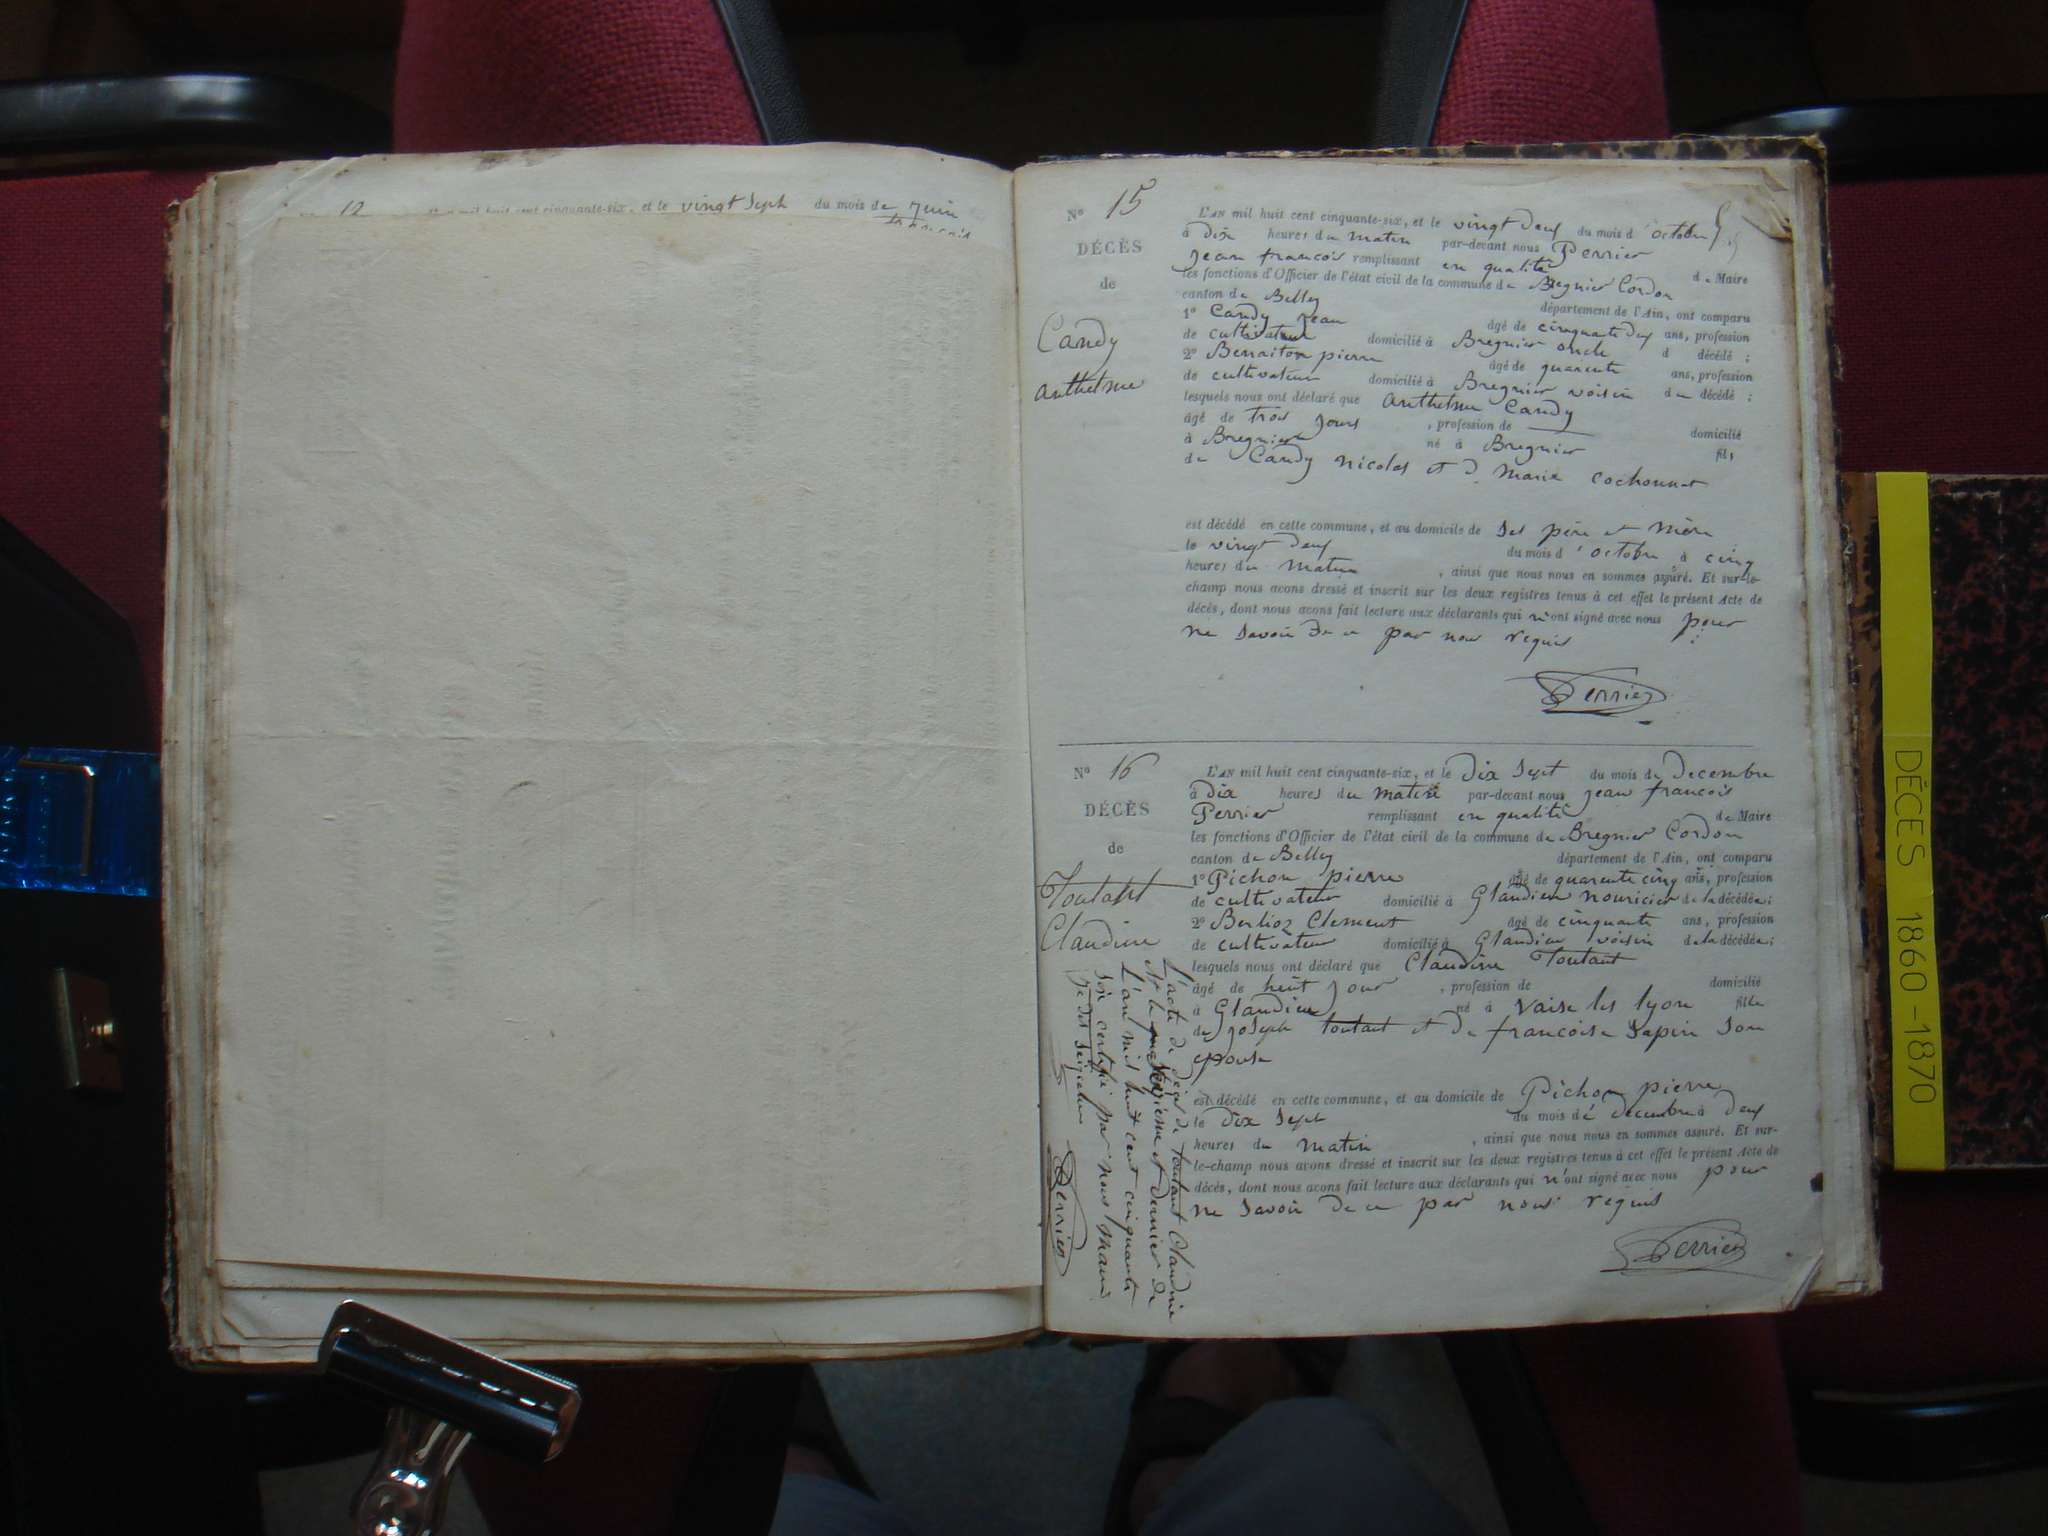 12 mil huit cent cinquante-six, et le vingt Sept du mois de Juin
N° 15
DÉCÈS
de
Candy
Anthelme
L'AN mil huit cent cinquante-six, et le vingt deux du mois d'octobre
à dix heures du matin par-devant nous Perrier
Jean francois remplissant en qualité de Maire
les fonctions d'Officier de l'état civil de la commune de Bregnier Cordon
canton de Belley département de l'Ain, ont comparu
1° Candy Jean âgé de cinquante deux ans, profession
de cultivateur domicilié à Bregnier oncle d décédé;
2° pierre âgé de quarente ans, profession
de cultivateur domicilié à Bregnier voisin du décédé;
lesquels nous ont déclaré que Anthelme Candy
âgé de trois jours, profession de domicilié
à Bregnier né à Bregnier fils
de Candy nicolas et d marie cochonnat
est décédé en cette commune, et au domicile de Ses père et mère
le vingt deux du mois d'octobre à cinq
heures du matin, ainsi que nous nous en sommes assuré. Et sur-le-
champ nous avons dressé et inscrit sur les deux registres tenus à cet effet le présent Acte de
décès, dont nous avons fait lecture aux déclarants qui n'ont signé avec nous pour
ne Savoir de ce par nous requis
Perrier
N° 16
DÉCÈS
de
Toutant
Claudine
L'AN mil huit cent cinquante-six, et le dix Sept du mois de decembre
à dix heures du matin par-devant nous jean francois
Perrier remplissant en qualité de Maire
les fonctions d'Officier de l'état civil de la commune de Bregnier Cordon
canton de Belley département de l'Ain, ont comparu
1° Pichon pierre âgé de quarente cinq ans, profession
de cultivateur domicilié à Glandieu nouricier de la décédée;
2° Berlioz Clement âgé de cinquante ans, profession
de cultivateur domicilié à Glandieu voisin de la décédée;
lesquels nous ont déclaré que Claudine Toutant
âgé de huit jour, profession de domicilié
à Glandieu né à Vaise les lyon fille
de joseph toutant et de francoise Sapin Son
epouse
est décédé en cette commune, et au domicile de Pichon pierre
le dix Sept du mois de decembre à deux
heures du matin, ainsi que nous nous en sommes assuré. Et sur-
le-champ nous avons dressé et inscrit sur les deux registres tenus à cet effet le présent Acte de
décès, dont nous avons fait lecture aux déclarants qui n'ont signé avec nous pour
ne Savoir de ce par nous requis
Perrier
L'acte de déces de toutant Claudine
est le Seizieme et dernier de
L'an mil huit cent cinquante
Six certifié par nous maire
je dis Seizieme
Perrier
DÉCES 1860-1870